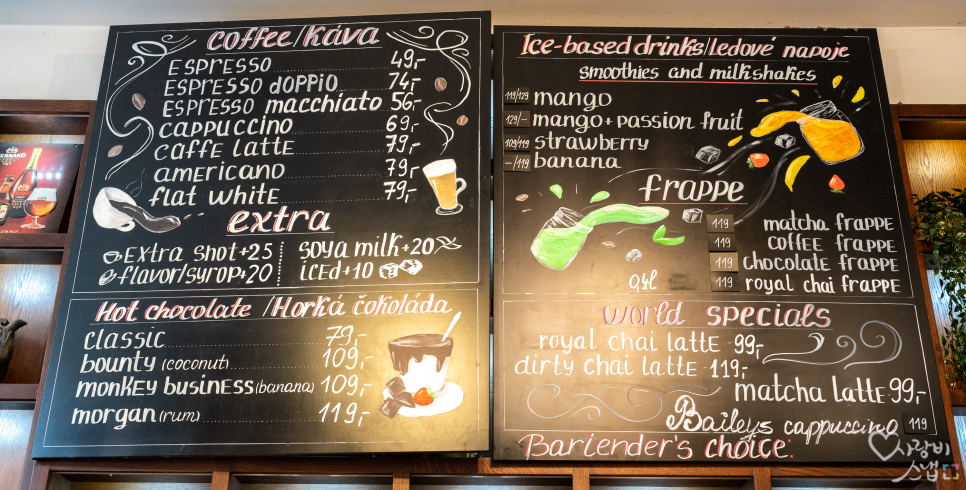 coffee/káva
ESPRESSO 49,-
ESPRESSO doppio 74,-
ESPRESSO macchiato 56,-
cappuccino 69,-
caffE lattE 79,-
americano 79,-
flat white 79,-
extra
Extra shot+25
flavor/syrop+20
soya milk+20
iced+10
Hot chocolate /Horká čokoláda
classic 79,-
bounty (coconut) 109,-
monkey business (banana) 109,-
morgan (rum) 119,-
Ice-based drinks/ledové napoje
smoothies and milkshakes
119/129 mango
129/- mango+passion fruit
109/119 strawberry
-/119 banana
frappe
119 matcha frappe
119 coffee frappe
119 chocolate frappe
119 royal chai frappe
0,4l
world specials
royal chai latte 99,-
dirty chai latte 119,-
matcha latte 99,-
Baileys cappuccino 119
Bartender's choice:
사랑비
스냅